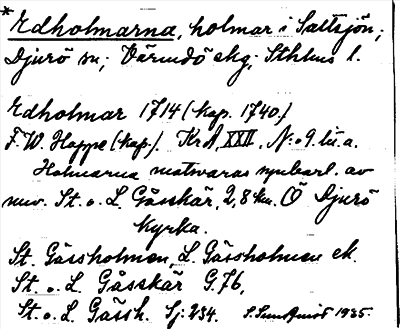 * Edholmarna, holmar i Saltsjön;
Djurö sn; Värmdö skg; Sthlms l.
Edholmar 1714 (kop. 1740.)
F. W. Hoppe (kop.). KrA, XXII, N:o 9. lit. a.
Holmarna motsvaras uppenb. av
nuv. St. o. L. Gåsskär, 2,8 km. Ö Djurö
kyrka.
St. Gåssholmen, L. Gåssholmen ek.
St. o. L. Gåsskär G.76,
St. o. L. Gåssk. Sj: 234. 1935.